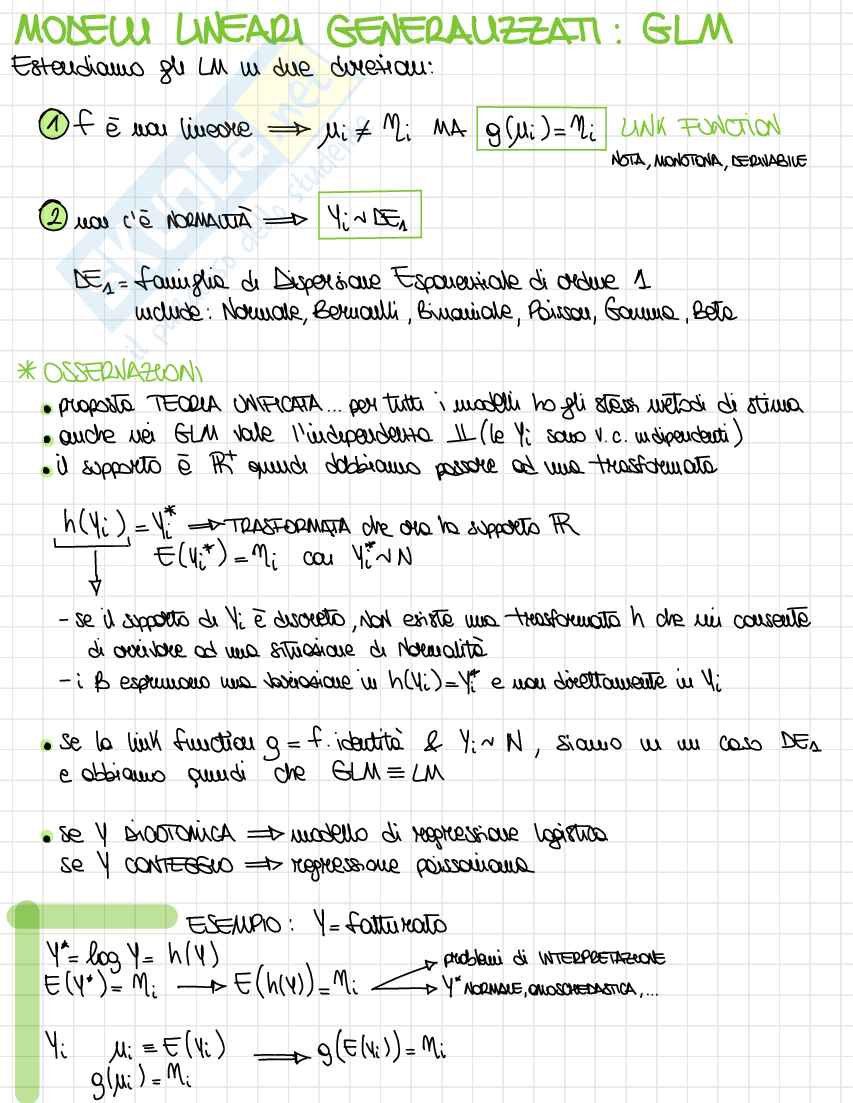 MODELLI LINEARI GENERALIZZATI : GLM
Estendiamo gli LM in due direzioni:
1 f è non lineare ⟹ μi ≠ ηi MA g(μi) = ηi LINK FUNCTION
NOTA, MONOTONA, DERIVABILE
2 non c'è NORMALITÀ ⟹ Yi ~ DE1
DE1 = famiglia di Dispersione Esponenziale di ordine 1
include: Normale, Bernoulli, Binomiale, Poisson, Gamma, Beta
* OSSERVAZIONI
• proposta TEORIA UNIFICATA... per tutti i modelli ho gli stessi metodi di stima
• anche nei GLM vale l'indipendenza ⫫ (le Yi sono v.c. indipendenti)
• il supporto è ℝ+ quindi dobbiamo passare ad una trasformata
h(Yi) = Yi* ⟹ TRASFORMATA che ora ha supporto ℝ
E(Yi*) = ηi con Yi* ~ N
- se il supporto di Yi è discreto, NON esiste una trasformata h che mi consente
di arrivare ad una situazione di Normalità
- i β esprimono una variazione in h(Yi) = Yi* e non direttamente in Yi
• se la link function g = f. identità & Yi ~ N, siamo in un caso DE1
e abbiamo quindi che GLM ≡ LM
• se Y DICOTOMICA ⟹ modello di regressione logistica
se Y CONTEGGIO ⟹ regressione poissoniana
ESEMPIO: Y = fatturato
Y* = log Y = h(Y)
problemi di INTERPRETAZIONE
E(Y*) = ηi → E(h(Y)) = ηi
Y* NORMALE, OMOSCHEDASTICA, ...
Yi μi = E(Yi) ⟹ g(E(Yi)) = ηi
g(μi) = ηi
SKUOLA.net
il paradiso dello studente